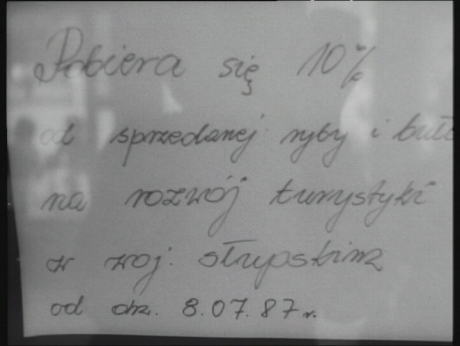 Pobiera się 10%
od sprzedanej ryby i
na rozwój turystyki
w woj. słupskim
od dn. 8.07.87r.